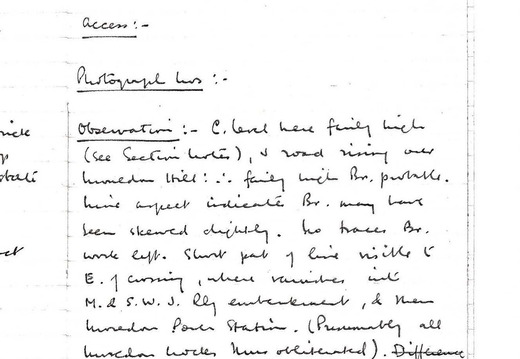 Access:-
Photograph nos:-
Observation:- C. level here fairly high
(see Section Notes), & road rising over
Moredon Hill: ∴ fairly high Br. probable.
Line aspect indicates Br. may have
been skewed slightly. No traces Br.
work left. Short part of line visible to
E. of crossing, where vanishes into
M. & S.W. J. Rly embankment, & then
Moredon Power Station. (Presumably all
Moredon Locks thus obliterated). Difference